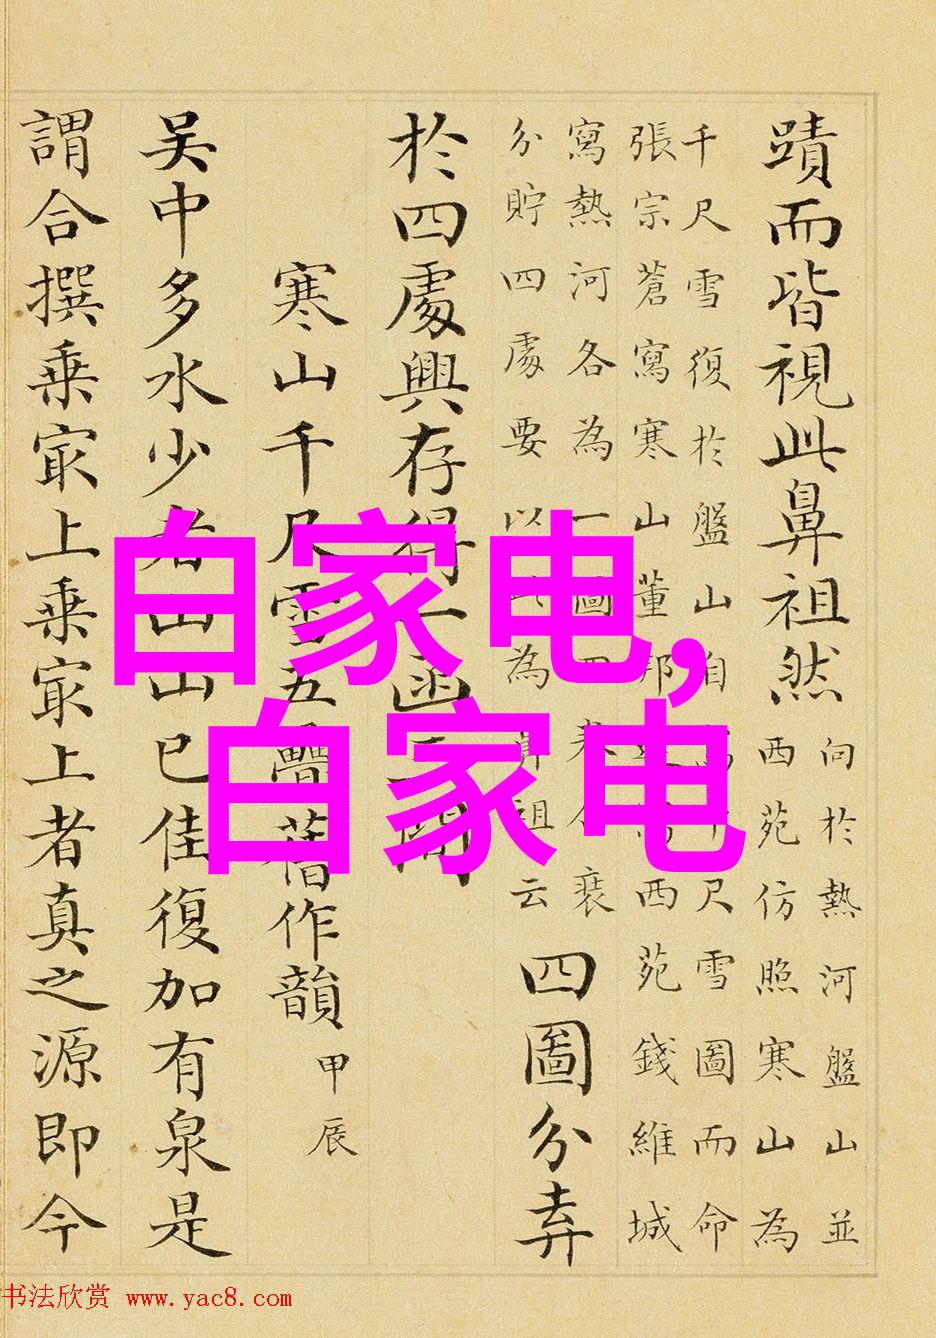 蹟而皆視此鼻祖然
向於熱河盤山並
西苑仿照寒山為
千尺雪復於盤山自寫千尺雪圖而命
張宗蒼寫寒山董邦達寫西苑錢維城
寫熱河各為一圖四裝
分貯四處要以此為鼻祖云
四圖分弆
於四處興存得一函
寒山千尺雪五疊舊作韻 甲辰
吳中多水少者山山已佳復加有泉是
謂合撰乘冣上乘冣上者真之源即今
白家电,
白家电
书法欣赏 www.yac8.com